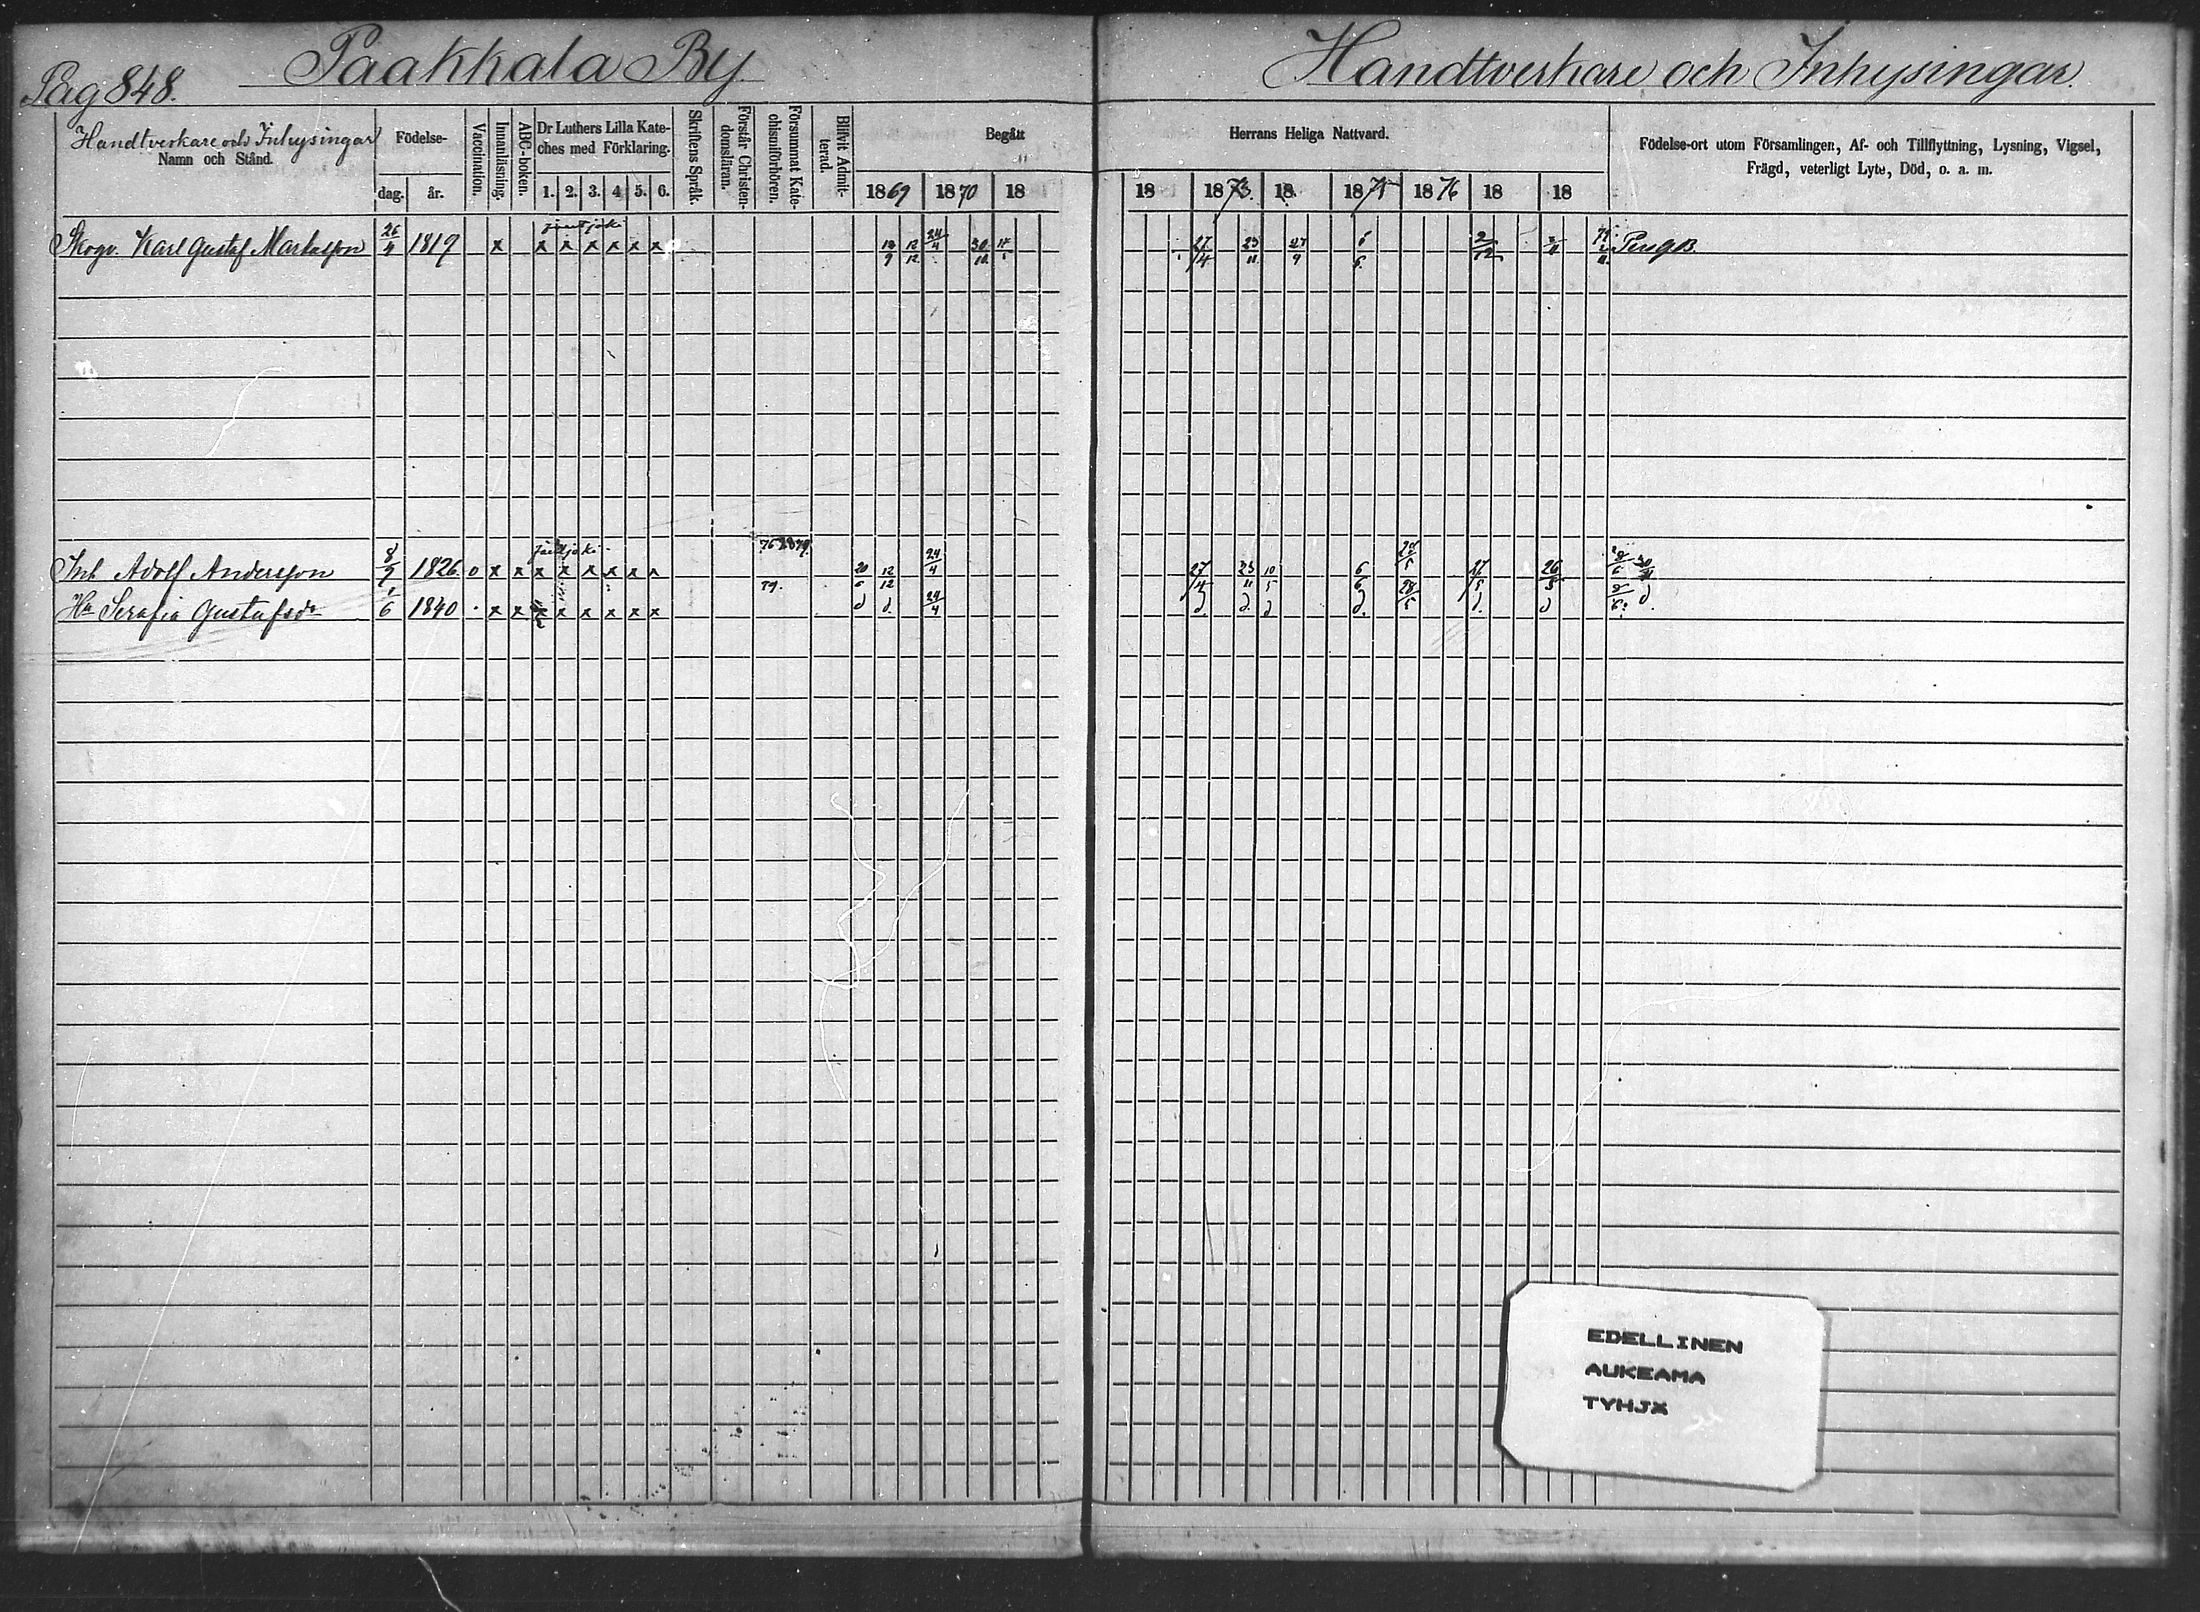 Pag 848. Paakkala By. Handtverkare och Inhysingar.
Handtverkare och Inhysingar
Namn och Stånd.
Födelse-
dag. år.
Vaccination.
Innanläsning.
ABC-boken.
Dr Luthers Lilla Kate-
ches med Förklaring.
1. 2. 3. 4 5. 6.
Skriftens Språk.
Förstår Christen-
domsläran.
Försummat Kate-
chismiförhören.
Blifvit Admit-
terad.
Begått Herrans Heliga Nattvard.
1869 1870 18 18 1873. 18 1875 1876 18 18
Födelse-ort utom Församlingen, Af- och Tillflyttning, Lysning, Vigsel,
Frägd, veterligt Lyte, Död, o. a. m.
Karl Gustaf 26/4 1819 x x x x x x x 24/4 27/4 23/11 27/9 6/6 2/12
Inh. Adolf Andersson 8/9 1826 o x x x x x x x x 20/6 12/12 24/4 27/4 23/11 10/5 6/6 28/5 27/5 26/5
Hu Serafia Gustafsdr 1/6 1840 x x x x x x x 79. d d. 24/4 d. d. d d. 28/5 d. d
EDELLINEN
AUKEAMA
TYHJX